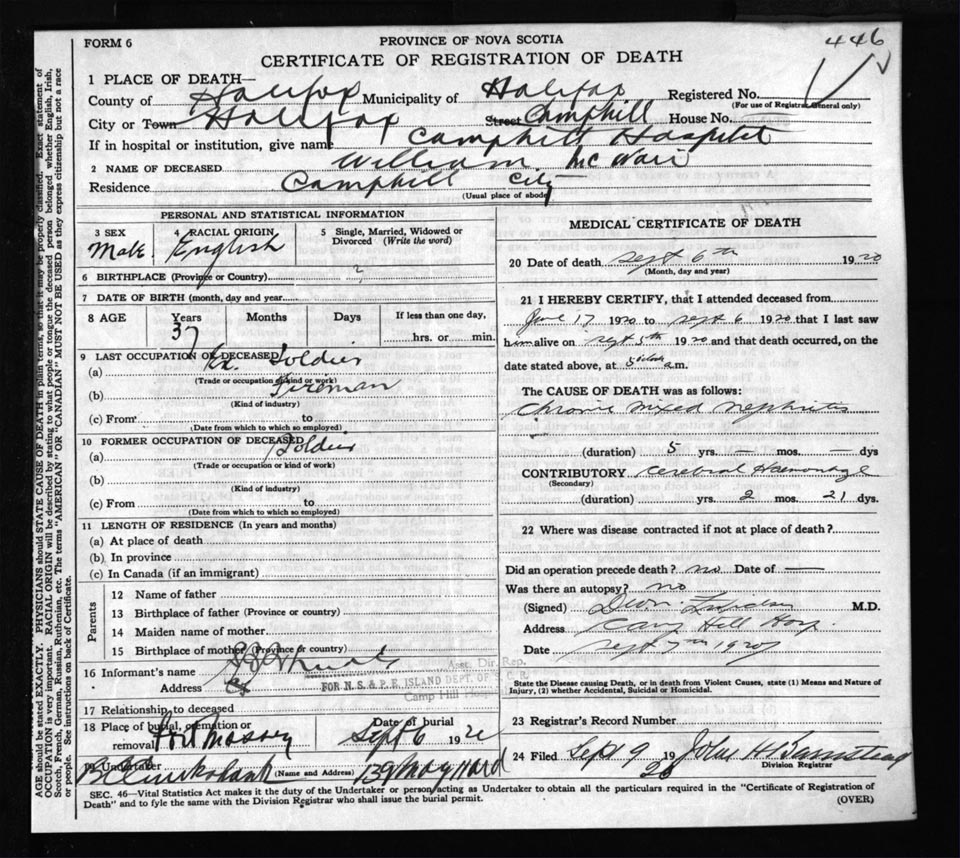 446
FORM 6
PROVINCE OF NOVA SCOTIA
CERTIFICATE OF REGISTRATION OF DEATH
1 PLACE OF DEATH—
County of Halifax Municipality of Halifax Registered No.
(For use of Registrar General only)
City or Town Halifax Street Camphill House No.
If in hospital or institution, give name Camphill Hospital
2 NAME OF DECEASED William
Residence Camphill City
(Usual place of abode)
PERSONAL AND STATISTICAL INFORMATION
3 SEX 4 RACIAL ORIGIN 5 Single, Married, Widowed or Divorced (Write the word)
Male. English
6 BIRTHPLACE (Province or Country) ?
7 DATE OF BIRTH (month, day and year)
8 AGE Years Months Days If less than one day,
37 hrs. or min.
9 LAST OCCUPATION OF DECEASED
(a) Ex. Soldier
(Trade or occupation or kind or work)
(b) Fireman
(Kind of industry)
(c) From to
(Date from which to which so employed)
10 FORMER OCCUPATION OF DECEASED
(a) Soldier
(Trade or occupation or kind of work)
(b)
(Kind of industry)
(c) From to
(Date from which to which so employed)
11 LENGTH OF RESIDENCE (In years and months)
(a) At place of death
(b) In province
(c) In Canada (if an immigrant)
Parents
12 Name of father
13 Birthplace of father (Province or country)
14 Maiden name of mother
15 Birthplace of mother (Province or country)
16 Informant's name
Asst. Dir. Rep.
Address FOR N. S. & P. E. ISLAND DEPT. OF S. C. R.
Camp Hill Hospital
17 Relationship to deceased
18 Place of burial, cremation or removal Fort Massey Date of burial Sept 6 192
19 Undertaker (Name and Address) 139 Maynard
MEDICAL CERTIFICATE OF DEATH
20 Date of death Sept 6th 1920
(Month, day and year)
21 I HEREBY CERTIFY, that I attended deceased from
June 17 1920 to Sept 6 1920 that I last saw
him alive on Sept 5th 1920 and that death occurred, on the
date stated above, at 5 o'clock a.m.
The CAUSE OF DEATH was as follows:
Chronic mixed nephritis
(duration) 5 yrs. — mos. — dys
CONTRIBUTORY Cerebral Haemorrage
(Secondary)
(duration) yrs. 2 mos. 21 dys.
22 Where was disease contracted if not at place of death?
Did an operation precede death? no Date of —
Was there an autopsy? no
(Signed) M.D.
Address Camp Hill Hosp.
Date Sept 7th 1920
State the Disease causing Death, or in death from Violent Causes, state (1) Means and Nature of
Injury, (2) whether Accidental, Suicidal or Homicidal.
23 Registrar's Record Number
24 Filed Sept 9 1920 John H Barnstead
Division Registrar
SEC. 46—Vital Statistics Act makes it the duty of the Undertaker or person acting as Undertaker to obtain all the particulars required in the "Certificate of Registration of
Death" and to fyle the same with the Division Registrar who shall issue the burial permit.
(OVER)
AGE should be stated EXACTLY. PHYSICIANS should STATE CAUSE OF DEATH in plain terms, so that it may be properly classified. Exact statement of
OCCUPATION is very important. RACIAL ORIGIN will be described by stating to what people or tongue the deceased person belonged whether English, Irish,
Scotch, French, German, Russian, Ruthenian, etc. The terms "AMERICAN" OR "CANADIAN" MUST NOT BE USED as they express citizenship but not a race
or people. See instructions on back of Certificate.